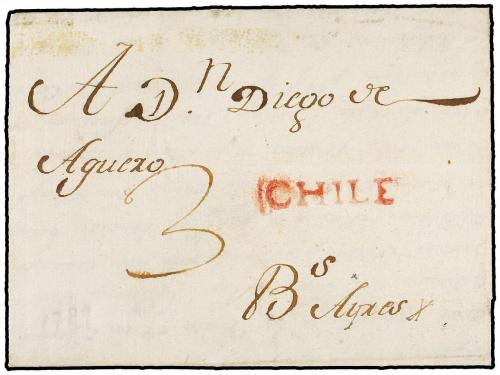 A D.n Diego de
Aguero
3
CHILE
Bs Ayres